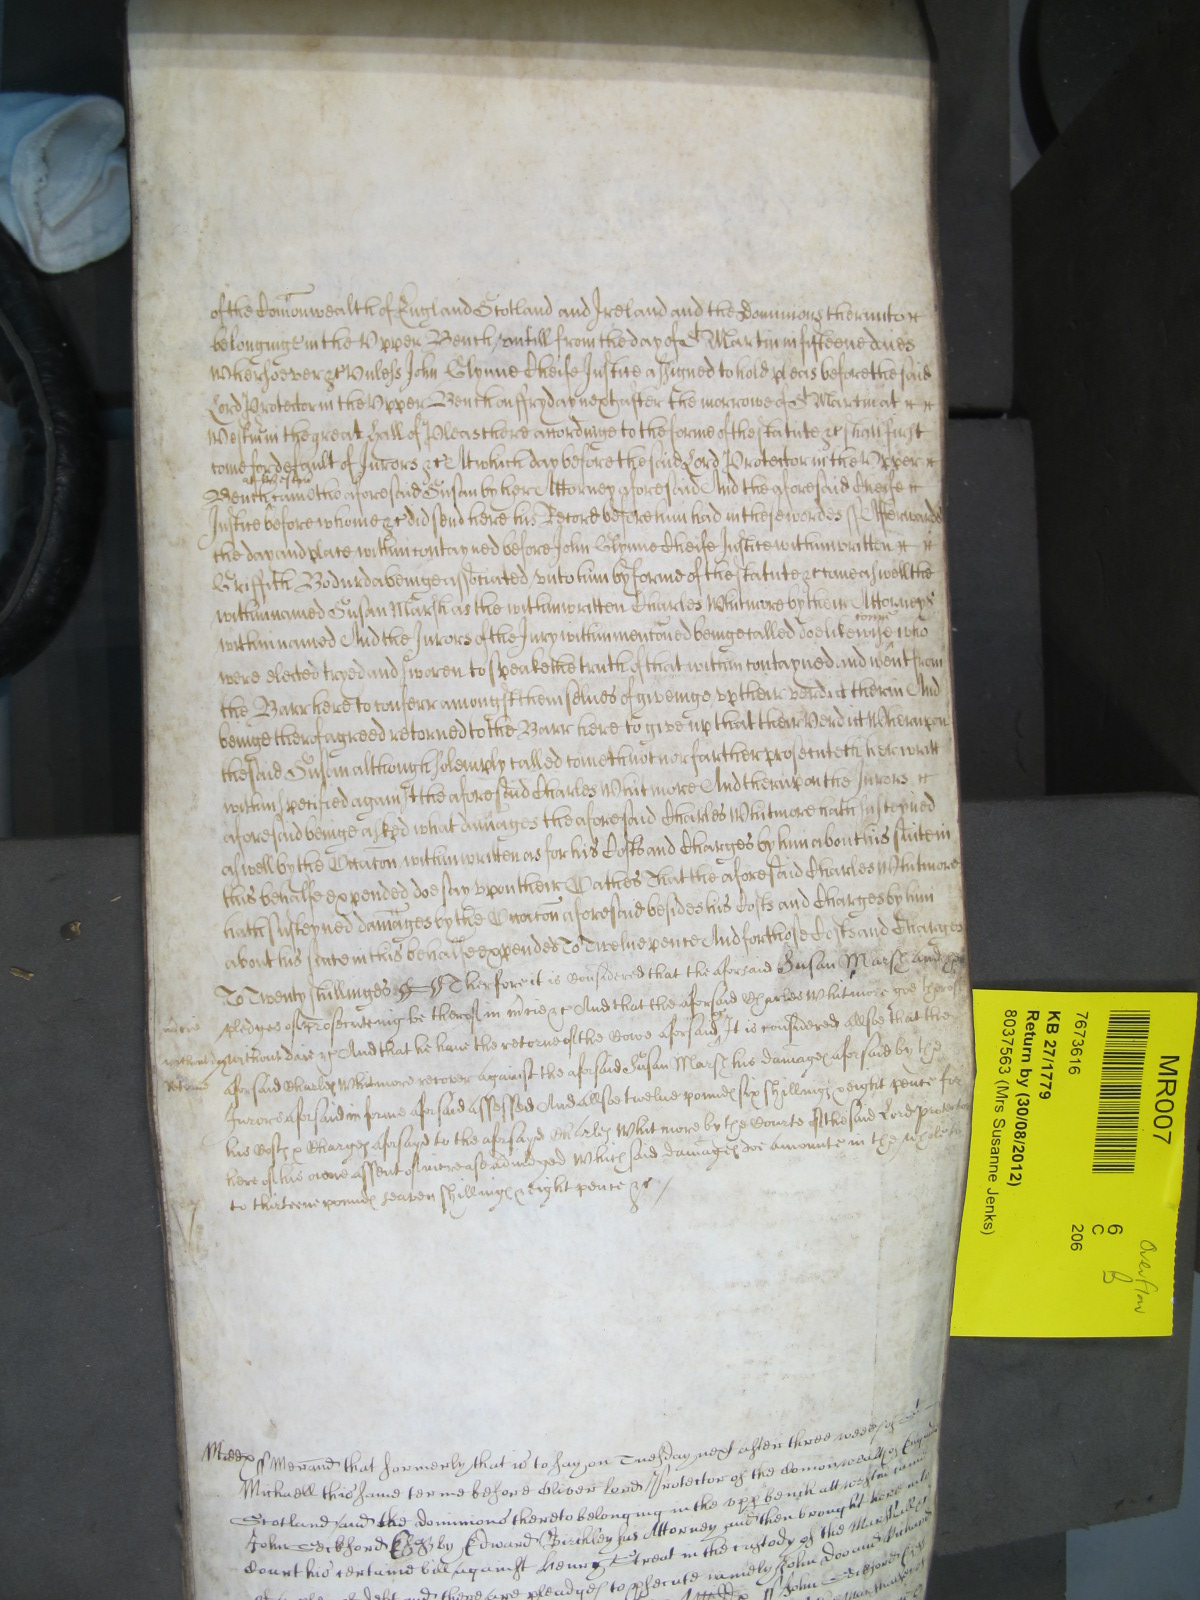 of the Com̄onwealth of England Scotland and Ireland and the Dominions therunto
belonginge in the Vpper Bench, vntill from the day of St Martin in fifteene daies
Whersoever &c Vnless John Glynne Cheife Justice assigned to hold pleas before the said
Lord Protector in the Vpper Bench on ffryday next after the morrowe of St Martin at
Westm̄ in the great hall of Pleas there accordinge to the forme of the statute &c shall first
come for default of Jurors &c At which day before the said Lord Protector in the Vpper
Bench came the aforesaid Susan by her Attorney aforesaid And the aforesaid Cheife
Justice before whome &c did send here his Record before him had in these wordes ss Afterwards
the day and place within contayned before John Glynne Cheife Justice within written
Griffith Bodurda beinge associated vnto him by forme of the statute &c came aswell the
within named Susan Marsh as the within written Charles Whitmore by their Attorneys
within named And the Jurors of the Jury within mencōned beinge called doe likewise come who
were elected tryed and sworen to speake the truth of that within contayned and went from
the Barr here to conferr amongst themselues of giveinge vp their verdict therin And
beinge therof agreed returned to the Barr here to give vp that their Verdict Wherupon
the said Susan although solemnly called cometh not nor farther prosecuteth her writt
within specified against the aforesaid Charles Whitmore And therupon the Jurors
aforesaid beinge asked what damages the aforesaid Charles Whitmore hath susteyned
aswell by the Occac̄on within written as for his Costs and Charges by him about his suite in
this behalfe expended doe say vpon their Oathes That the aforesaid Charles Whitmore
hath susteyned damages by the Occac̄on aforesaid besides his Costs and Charges by him
about his suite in this behalfe expended To Twelve pence And for those Costs and Charges
To Twenty shillinges Therfore it is Considered that the aforsaid Susan Marsh and
pledges of prosecuteing be therof in m̄cie &c And that the aforsaid Charles Whitmore goe therof
without daie &c And that he haue the retorne of the Cowe aforsaid &c It is considered allsoe that the
aforsaid Charles Whitmore recover against the aforsaid Susan Marsh his damages aforsaid by the
Jurors aforsaid in forme aforsaid assessed And allsoe twelue pounds six shillings & eight pence for
his Costs & Charges aforsayd to the aforsayd Charles Whitmore by the Courte of the said Lord protector
here of his owne assent of increase adiudged Which said damages doe amounte in the whole
to thirteene pounds seaven shillings & eight pence &c
Midd̄x ss Memrand that formerly that is to say on Tuesday next after three weeks of St
Michaell this same terme before Oliver Lord Protector of the Comonwealth of England
Scotland and the dominions thereto belonging in the vpp bench att westm̄ came
John Beckford by Edward Birchley his Attorney and then brought here into
Court his certaine bill against Henry Streat in the custody of the Marshall
of debt and there are pledges to p̄secute namely John Doo and Richard
MR007
7673616
KB 27/1779
Return by (30/08/2012)
8037563 (Mrs Susanne Jenks)
6
C
206
Overflow